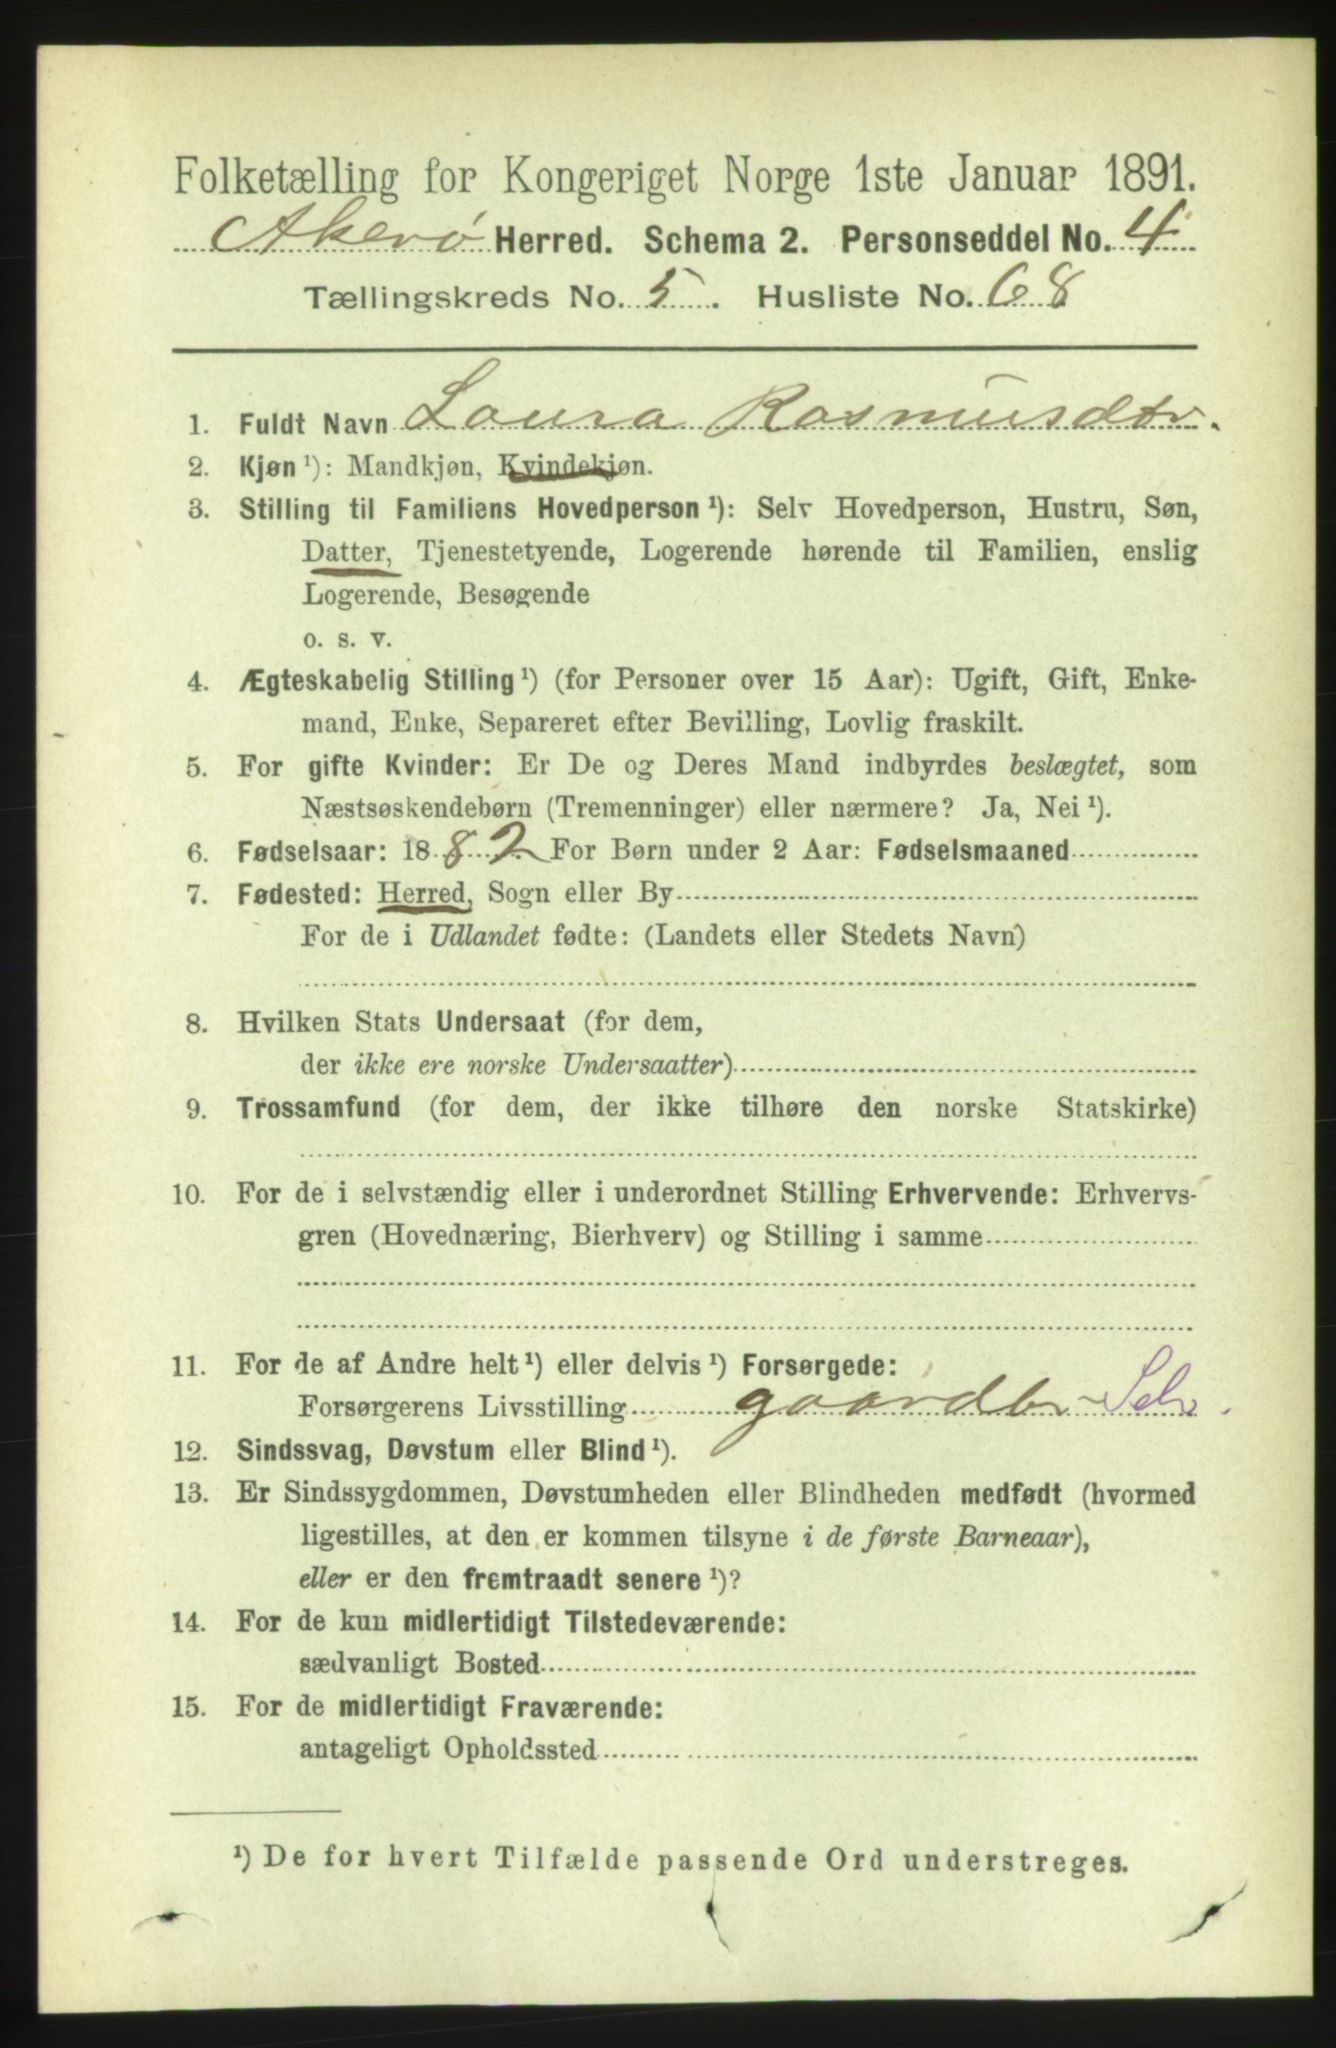 Folketælling for Kongeriget Norge 1ste Januar 1891.
Akerø Herred. Schema 2. Personseddel No. 4
Tællingskreds No. 5. Husliste No. 68
1. Fuldt Navn Laura Rasmusdtr.
2. Kjøn ¹): Mandkjøn, Kvindekjøn.
3. Stilling til Familiens Hovedperson ¹): Selv Hovedperson, Hustru, Søn,
Datter, Tjenestetyende, Logerende hørende til Familien, enslig
Logerende, Besøgende
o. s. v.
4. Ægteskabelig Stilling ¹) (for Personer over 15 Aar): Ugift, Gift, Enke-
mand, Enke, Separeret efter Bevilling, Lovlig fraskilt.
5. For gifte Kvinder: Er De og Deres Mand indbyrdes beslægtet, som
Næstsøskendebørn (Tremenninger) eller nærmere? Ja, Nei ¹).
6. Fødselsaar: 1882 For Børn under 2 Aar: Fødselsmaaned
7. Fødested: Herred, Sogn eller By
For de i Udlandet fødte: (Landets eller Stedets Navn)
8. Hvilken Stats Undersaat (for dem,
der ikke ere norske Undersaatter)
9. Trossamfund (for dem, der ikke tilhøre den norske Statskirke)
10. For de i selvstændig eller i underordnet Stilling Erhvervende: Erhvervs-
gren (Hovednæring, Bierhverv) og Stilling i samme
11. For de af Andre helt ¹) eller delvis ¹) Forsørgede:
Forsørgerens Livsstilling gaardbr Selv.
12. Sindssvag, Døvstum eller Blind ¹).
13. Er Sindssygdommen, Døvstumheden eller Blindheden medfødt (hvormed
ligestilles, at den er kommen tilsyne i de første Barneaar),
eller er den fremtraadt senere ¹)?
14. For de kun midlertidigt Tilstedeværende:
sædvanligt Bosted
15. For de midlertidigt Fraværende:
antageligt Opholdssted
¹) De for hvert Tilfælde passende Ord understreges.